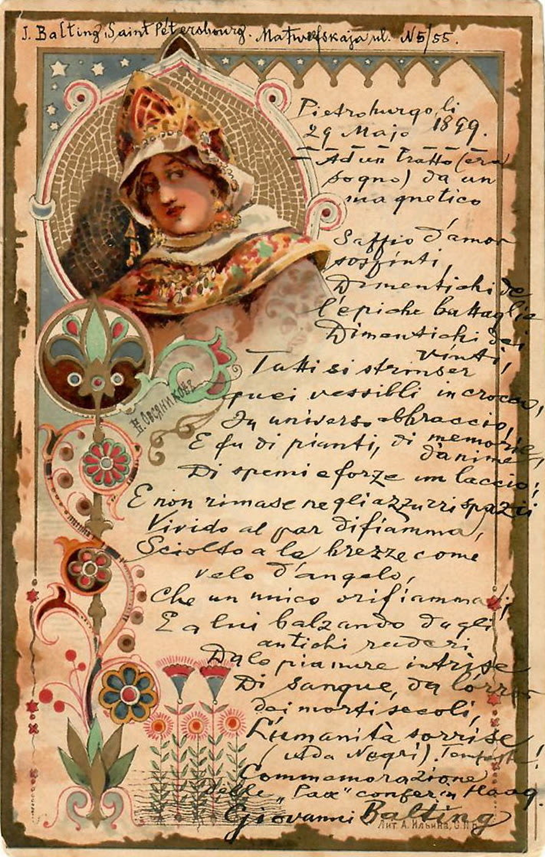 J. Balting, Saint Pétersbourg. Matwejskaja, ul. N5/55.
Pietroburgo, li
29 Majo 1899.
Ad un tratto (era
sogno) da un
magnetico
Soffio d'amor
sospinti,
Dimentichi de
l'epiche battaglie
Dimentichi dei
vinti,
Tutti si strinser
quei vessilli in croccio,
In universo abbraccio,
E fu di pianti, di memorie,
d'anime,
Di spemi e forze un laccio;
E non rimase negli azzurri spazii
Vivido al par di fiamma,
Sciolto a le brezze come
velo d'angelo,
Che un unico orifiamma!
E a lui balzando dagli
antichi ruderi,
Da lo pianure intrise
Di sangue, da l'orror
dei morti secoli,
L'umanità sorrise
(Ada Negri), Tempeste!
Commemorazione
delle "Pax" confer. in Haag.
Giovanni Balting
Н. Овчинниковъ
Лит. А. Ильина, С.П.б.